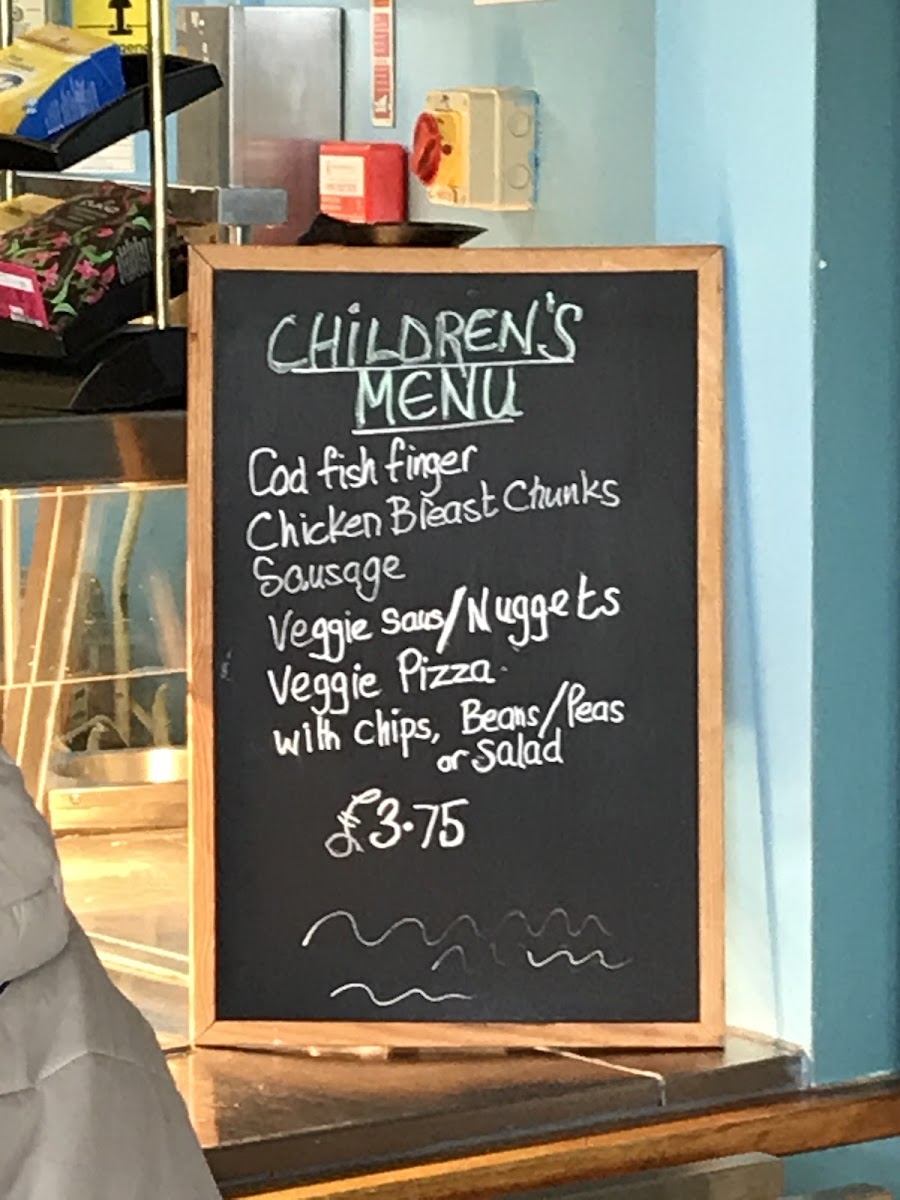 CHILDREN'S
MENU
Cod fish finger
Chicken Breast Chunks
Sausage
Veggie Saus/Nuggets
Veggie Pizza.
with chips, Beans/Peas
or Salad
£3.75